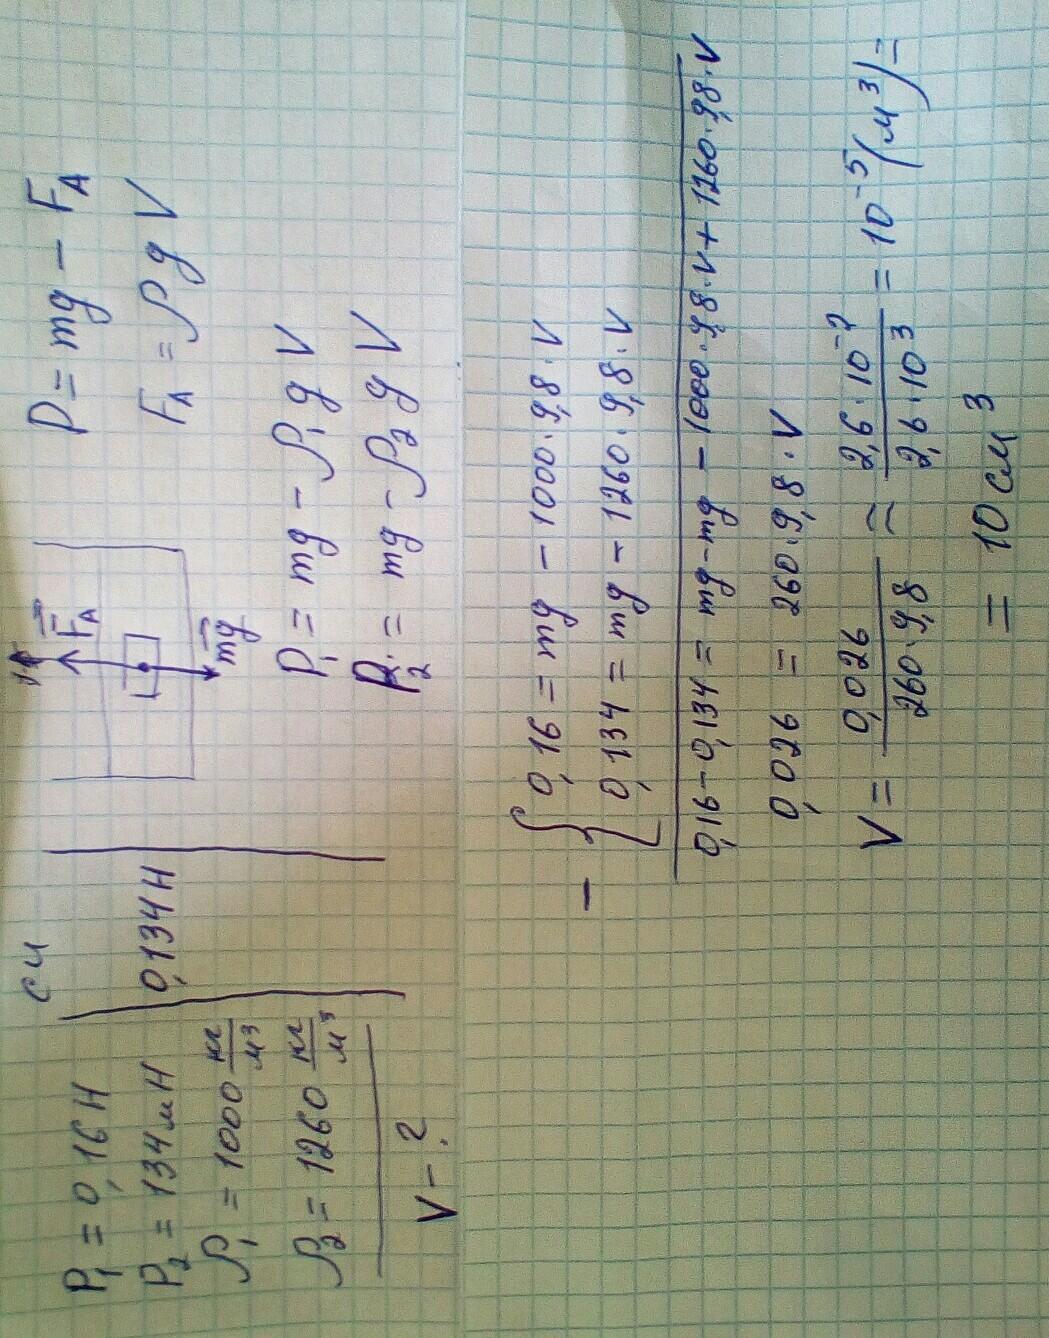 СИ
P₁ = 0,16 Н
P₂ = 134 мН
0,134 Н
ρ₁ = 1000 кг/м³
ρ₂ = 1260 кг/м³
V – ?
F̅_A
m̅g̅
P = mg – F_A
F_A = ρgV
P₁ = mg – ρ₁gV
P₂ = mg – ρ₂gV
– { 0,16 = mg – 1000·9,8·V
0,134 = mg – 1260·9,8·V
0,16–0,134 = mg–mg – 1000·9,8·V + 1260·9,8·V
0,026 = 260·9,8·V
V = 0,026/260·9,8 ≈ 2,6·10⁻²/2,6·10³ = 10⁻⁵(м³) =
= 10 см³